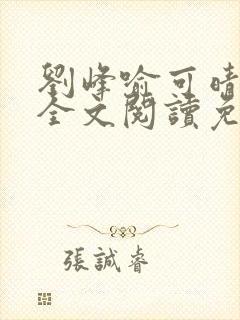 劉峰喻可晴
全文閱讀免
張誠睿